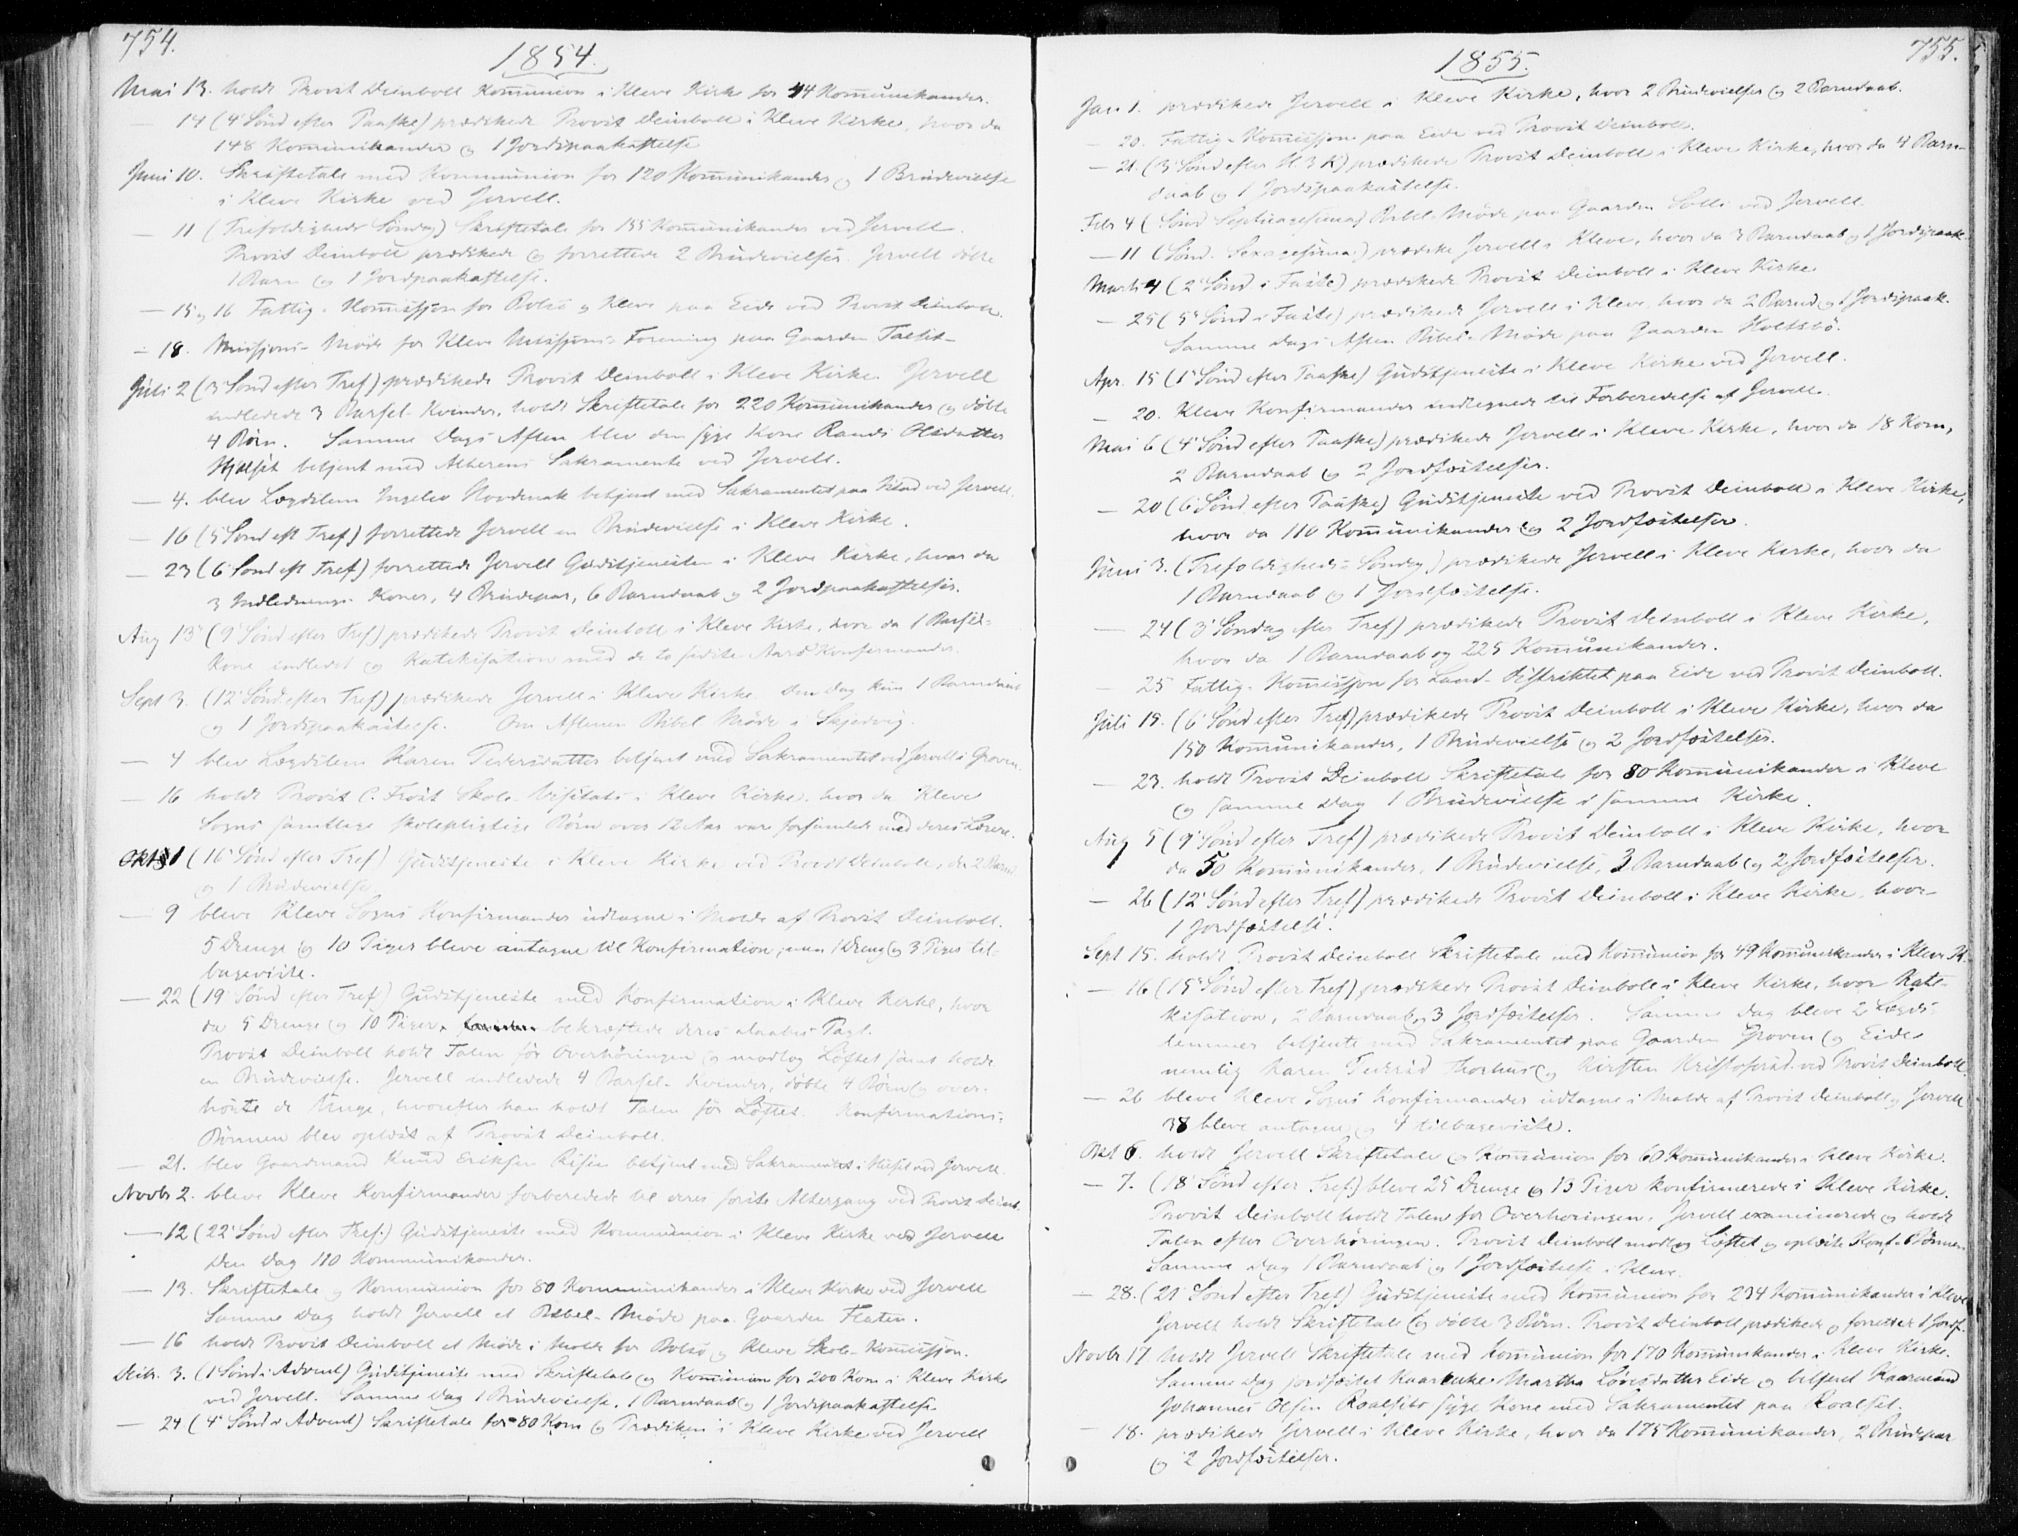 754.
1854.
Mai 13. holdt Provst Deinboll Kommunion i Kleve Kirke for 44 Kommunikander.
— 14 (4' Sönd efter Paaske) prædikede Provst Deinboll i Kleve Kirke, hvor da
148 Kommunikander og 1 Jordspaakastelse
Juni 10. Skriftetale med Kommunion for 120 Kommunikander og 1 Brudevielse
i Kleve Kirke ved Jervell.
— 11 (Trefoldigheds Söndag) Skriftetale for 155 Kommunikander ved Jervell.
Provst Deinboll prædikede og forrettede 2 Brudevielser. Jervell döbte
1 Barn og 1 Jordpaakastelse.
— 15 og 16 Fattig-Kommission for Bolsö og Kleve paa Eide ved Provst Deinboll.
— 18. Missions-Möde for Kleve Missions-Forening paa Gaarden
Juli 2 (3' Sönd efter Tref) prædikede Provst Deinboll i Kleve Kirke. Jervell
indledede 3 Barsel-Kvinder, holdt Skriftetale for 220 Kommunikander og döbte
4 Börn. Samme Dags Aften blev den syge Kone Randi Olsdatter
Hjelset betjent med Altherens Sakramente ved Jervell.
— 4. blev Lægdslem Ingelev Hovdenak betjent med Sakramentet paa ved Jervell.
— 16 (5 Sönd eft Tref) forrettede Jervell en Brudevielse i Kleve Kirke.
— 23 (6' Sönd eft Tref) forrettede Jervell Gudstjenesten i Kleve Kirke, hvor da
3 Indlednings-Koner, 4 Brudepar, 6 Barndaab og 2 Jordpaakastelser.
Aug 13 (9' Sönd efter Tref) prædikede Provst Deinboll i Kleve Kirke, hvor da 1 Barsel-
Kone indledet og Katekisation med de to sidste Aars Konfirmander.
Sept 3. (12' Sönd efter Tref) prædikede Jervell i Kleve Kirke. Den Dag kun 1 Barndaab
og 1 Jordspaakastelse. Om Aftenen Bibel Möde i Skjedvig.
— 4 blev Lægdslem Karen Pedersdatter betjent med Sakramentet ved Jervell i Groven.
— 16 holdt Provst C. Frost Skole-Visitats i Kleve Kirke, hvor da Kleve
Sogns samtlige skolepligtige Börn over 12 Aar vare forsamlede med deres Lærere.
Oktb 1 (16' Sönd efter Tref) Gudstjeneste i Kleve Kirke ved Provst Deinboll, da 2 Barnd
og 1 Brudevielse
— 9 bleve Kleve Sogns Konfirmander udtagne i Molde af Provst Deinboll.
5 Drenge og 10 Piger bleve antagne til Konfirmation; men 1 Dreng og 3 Piger til-
bageviste.
— 22 (19' Sönd efter Tref) Gudstjeneste med Konfirmation i Kleve Kirke, hvor
da 5 Drenge og 10 Piger bekræftede deres Daabes Pagt.
Provst Deinboll holdt Talen för Overhöringen og modtog Löftet samt holdt
en Brudevielse. Jervell indledede 4 Barsel-Kvinder, döbte 4 Börn og over-
hörte de Unge, hvorefter han holdt Talen för Löftet. Konfirmations-
Bönnen blev oplæst af Provst Deinboll.
— 21. blev Gaardmand Knud Eriksen betjent med Sakramentet i ved Jervell.
Novbr 2. bleve Kleve Konfirmander forberedede til deres förste Altergang ved Provst Deinb.
— 12 (22' Sönd efter Tref.) Gudstjeneste med Kommunion i Kleve Kirke ved Jervell
Den Dag 110 Kommunikander.
— 13. Skriftetale og Kommunion for 80 Kommunikander i Kleve Kirke ved Jervell
Samme Dag holdt Jervell et Bibel-Möde paa Gaarden Flaten.
— 16 holdt Provst Deinboll et Möde i Molde for Bolsö og Kleve Skole-Kommission.
Decbr. 3. (1 Sönd i Advent) Gudstjeneste med Skriftetale og Kommunion for 200 Kom i Kleve Kirke
ved Jervell. Samme Dag 1 Brudevielse, 1 Barndaab og 1 Jordspaakastelse
— 24 (4' Sönd i Advent) Skriftetale for 80 Kom og Prædiken i Kleve Kirke ved Jervell
755.
1855.
Jan 1. prædikede Jervell i Kleve Kirke, hvor 2 Brudevielser og 2 Barndaab.
— 20. Fattig-Kommission paa Eide ved Provst Deinboll.
— 21. (3' Sönd efter H 3 K) prædikede Provst Deinboll i Kleve Kirke, hvor da 4 Barn-
daab og 1 Jordspaakastelse.
Febr 4 (Sönd Septuagesima) Bibel-Möde paa Gaarden Solli ved Jervell.
— 11 (Sönd. Sexagesima) prædike Jervell i Kleve, hvor da 3 Barndaab og 1 Jordspaak.
Marts 4 (2' Sönd i Faste) prædikede Provst Deinboll i Kleve Kirke
— 25 (5' Sönd i Faste) prædikede Jervell i Kleve, hvor da 2 Barnd. og 1 Jordspaak.
Samme Dags Aften Bibel-Möde paa Gaarden Holtsbö.
Apr. 15 (1' Sönd efter Paaske) Gudstjeneste i Kleve Kirke ved Jervell.
— 20. Kleve Konfirmander indtegnede til Forberedelse af Jervell.
Mai 6 (4' Sönd efter Paaske) prædikede Jervell i Kleve Kirke, hvor da 18 Kom,
2 Barndaab og 2 Jordfæstelser.
— 20 (6' Sönd efter Paaske) Gudstjeneste ved Provst Deinboll i Kleve Kirke,
hvor da 110 Kommunikander og 2 Jordfæstelser.
Juni 3. (Trefoldigheds-Söndag) prædikede Jervell i Kleve Kirke, hvor da
1 Barndaab og 1 Jordfæstelse.
— 24 (3' Söndag efter Tref) prædikede Provst Deinboll i Kleve Kirke,
hvor da 1 Barndaab og 225 Kommunikander.
— 25 Fattig-Kommission for Land-Distriktet paa Eide ved Provst Deinboll.
Juli 15. (6' Sönd efter Tref) prædikede Provst Deinboll i Kleve Kirke, hvor da
150 Kommunikander, 1 Brudevielse og 2 Jordfæstelser.
— 23. holdt Provst Deinboll Skriftetale for 80 Kommunikander i Kleve
og samme Dag 1 Brudevielse i samme Kirke.
Aug 5 (9' Sönd efter Tref) prædikede Provst Deinboll i Kleve Kirke, hvor
da 50 Kommunikander, 1 Brudevielse, 3 Barndaab og 2 Jordfæstelser.
— 26 (12' Sönd efter Tref) prædikede Provst Deinboll i Kleve Kirke, hvor
1 Jordfæstelse.
Sept 15. holdt Provst Deinboll Skriftetale med Kommunion for 49 Kommunikander i Kleve K.
— 16 (15' Sönd efter Tref) prædikede Provst Deinboll i Kleve Kirke, hvor Kate-
kisation, 2 Barndaab og 3 Jordfæstelser. Samme Dag bleve 2 Lægds-
lemmer betjente med Sakramentet paa Gaarden Groven og Eide
nemlig Karen Pedersd og Kirsten Kristofersd. ved Provst Deinboll.
— 26 bleve Kleve Sogns Konfirmander udtagne i Molde af Provst Deinboll og Jervell
38 bleve antagne og 4 tilbageviste.
Okt 6. holdt Jervell Skriftetale og Kommunion for 60 Kommunikander i Kleve Kirke.
— 7. (18' Sönd efter Tref) bleve 25 Drenge og 13 Piger konfirmerede i Kleve Kirke.
Provst Deinboll holdt Talen för Overhöringen. Jervell examinerede og holdt
Talen efter Overhöringen. Provst Deinboll modtog Löftet og oplæste Konf-Bönnen
Samme Dag 1 Barndaab og 1 Jordfæstelse i Kleve.
— 28. (21' Sönd efter Tref) Gudstjeneste med Kommunion for 234 Kommunikander i Kleve
Jervell holdt Skriftetale og döbte 3 Börn. Provst Deinboll prædikede og forrettet 1 Jordf.
Novbr 17. holdt Jervell Skriftetale med Kommunion for 170 Kommunikander i Kleve Kirke.
Samme Dag jordfæstet Martha Larsdatter Eide og betjent Kaarmand
Johannes Olsen Roalsetbö syge Kone med Sakramentet paa Roalset.
— 18. prædikede Jervell i Kleve Kirke, hvor da 175 Kommunikander, 2 Brudepar
og 2 Jordfæstelser.